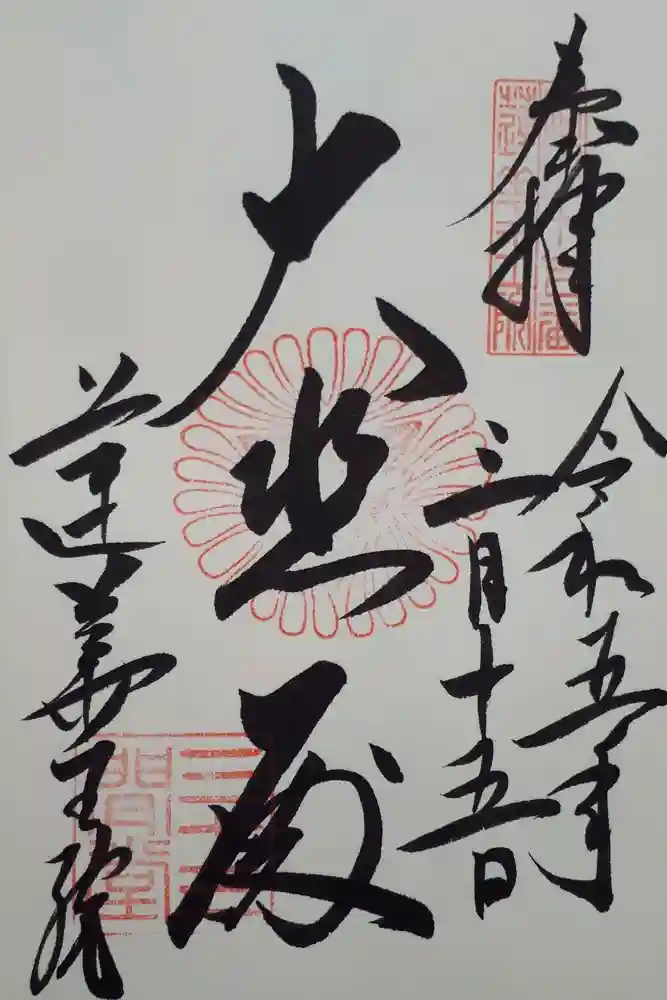 奉拝
令和五年
三月十五日
大悲殿
蓮華王院
三十三
間堂